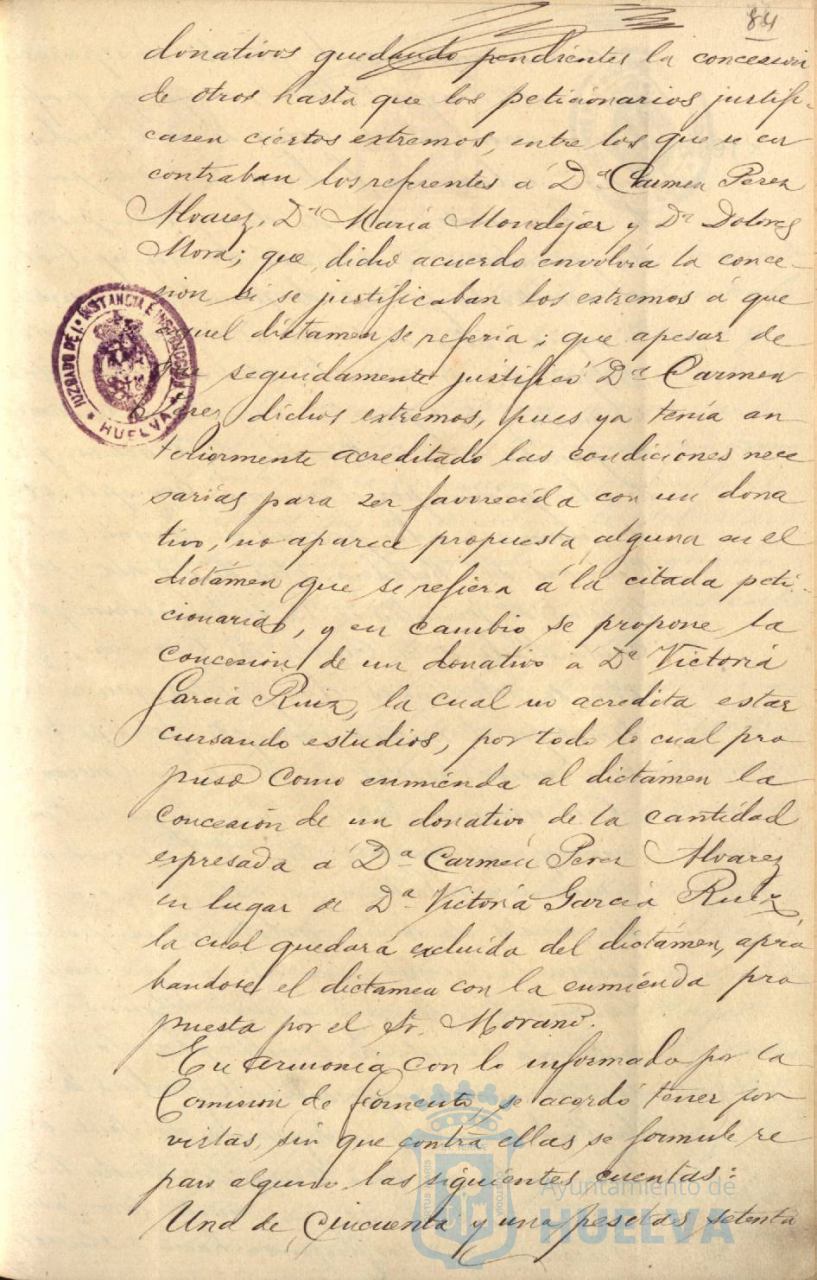 84
donativos quedando pendientes la concesion
de otros hasta que los peticionarios justifi-
casen ciertos extremos, entre los que se en
contraban los referentes á Dª Carmen Perez
Alvarez, Dª María Mondejar y Dª Dolores
Mora; que dicho acuerdo envolvía la conce-
sion si se justificaban los extremos á que
aquel dictamen se refería; que apesar de
que seguidamente justificó Dª Carmen
Perez dichos extremos, pues ya tenía an
teriormente acreditado las condiciones nece
sarias para ser favorecida con un dona
tivo, no aparece propuesta alguna en el
dictámen que se refiera á la citada peti-
cionaria, y en cambio se propone la
concesión de un donativo á Dª Victoria
García Ruiz, la cual no acredita estar
cursando estudios, por todo lo cual pro
puso como enmienda al dictámen la
concesión de un donativo de la cantidad
expresada á Dª Carmen Perez Alvarez
en lugar de Dª Victoria García Ruiz,
la cual quedará excluida del dictámen, apro
bandose el dictamen con la enmienda pro
puesta por el Sr. Morano.
En armonia con lo informado por la
Comision de Fomento, se acordó tener por
vistas, sin que contra ellas se formule re
paro alguno las siguientes cuentas:
Una de, Cincuenta y una pesetas setenta
JUZGADO DE 1ª INSTANCIA E INSTRUCCION
HUELVA
Ayuntamiento de
HUELVA